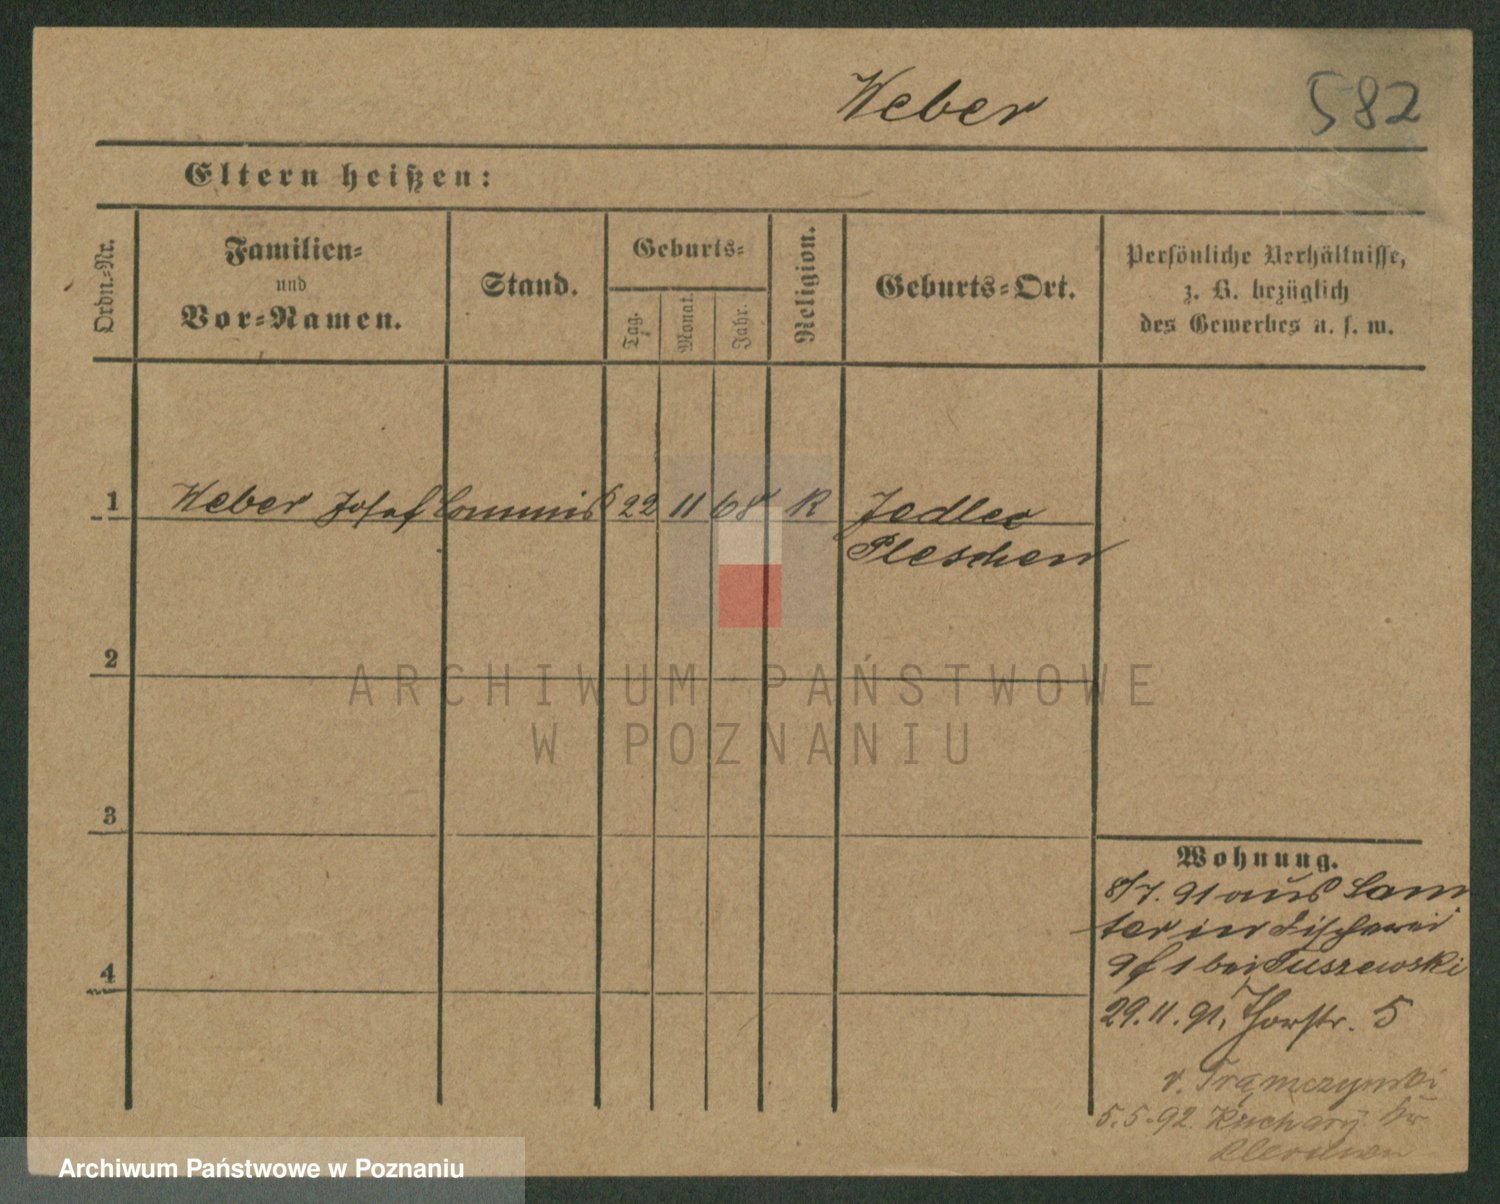 Weber
582
Eltern heißen:
Ordn.-Nr.
Familien-
und
Vor-Namen.
Stand.
Geburts-
Tag.
Monat.
Jahr.
Religion.
Geburts-Ort.
Persönliche Verhältnisse,
z. B. bezüglich
des Gewerbes u. s. w.
1 Weber Josef Commis 22 11 68 K Jedlec
Pleschen
2
3
4
Wohnung.
8/7. 91 aus Sam
ter in Fischerei
9 1 bei Tuszewski
29.11.91, Thorstr. 5
v. Trąmczynski
5.5.92. Kuchary
ARCHIWUM PAŃSTWOWE
W POZNANIU
Archiwum Państwowe w Poznaniu